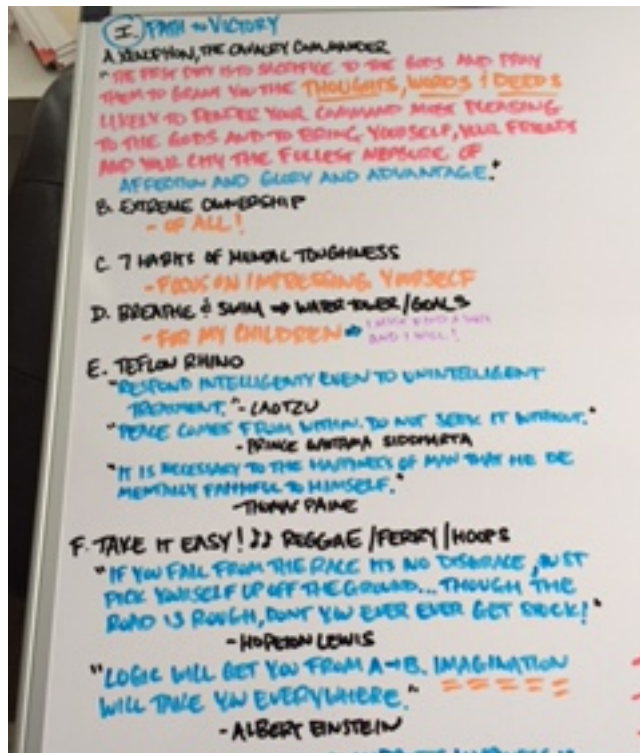 I. PATH TO VICTORY
A. XENOPHON, THE CAVALRY COMMANDER
"THE FIRST DUTY IS TO SACRIFICE TO THE GODS AND PRAY
THEM TO GRANT YOU THE THOUGHTS, WORDS & DEEDS
LIKELY TO RENDER YOUR COMMAND MOST PLEASING
TO THE GODS AND TO BRING YOURSELF, YOUR FRIENDS
AND YOUR CITY THE FULLEST MEASURE OF
AFFECTION AND GLORY AND ADVANTAGE."
B. EXTREME OWNERSHIP
- OF ALL!
C. 7 HABITS OF MENTAL TOUGHNESS
- FOCUS ON IMPRESSING YOURSELF
D. BREATHE & SWIM → WATER TOWER/GOALS
- FOR MY CHILDREN → I MUST FIND A WAY
AND I WILL!
E. TEFLON RHINO
"RESPOND INTELLIGENTY EVEN TO UNINTELLIGENT
TREATMENT." - LAOTZU
"PEACE COMES FROM WITHIN. DO NOT SEEK IT WITHOUT."
- PRINCE GAUTAMA SIDDHARTA
"IT IS NECESSARY TO THE HAPPINESS OF MAN THAT HE BE
MENTALLY FAITHFUL TO HIMSELF."
- THOMAS PAINE
F. TAKE IT EASY! ♪♪ REGGAE/FERRY/HOOPS
"IF YOU FALL FROM THE RACE IT'S NO DISGRACE, JUST
PICK YOURSELF UP OFF THE GROUND... THOUGH THE
ROAD IS ROUGH, DONT YOU EVER EVER GET STUCK!"
- HOPETON LEWIS
"LOGIC WILL GET YOU FROM A→B. IMAGINATION
WILL TAKE YOU EVERYWHERE."
- ALBERT EINSTEIN